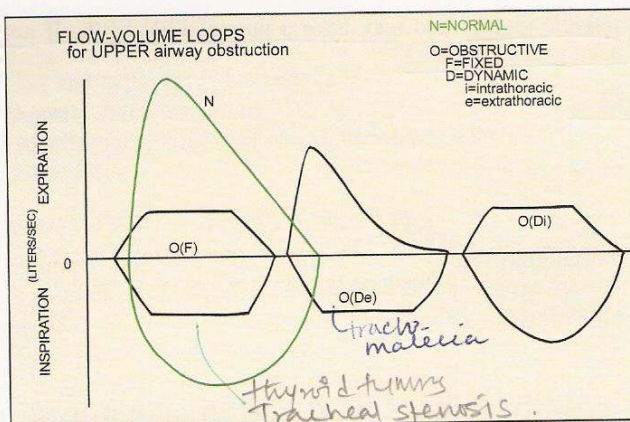 FLOW-VOLUME LOOPS
for UPPER airway obstruction
N=NORMAL
O=OBSTRUCTIVE
F=FIXED
D=DYNAMIC
i=intrathoracic
e=extrathoracic
N
EXPIRATION
(LITERS/SEC)
INSPIRATION
0
O(F)
O(De)
O(Di)
tracho-
malecia
thyroid tumors
Tracheal stenosis.